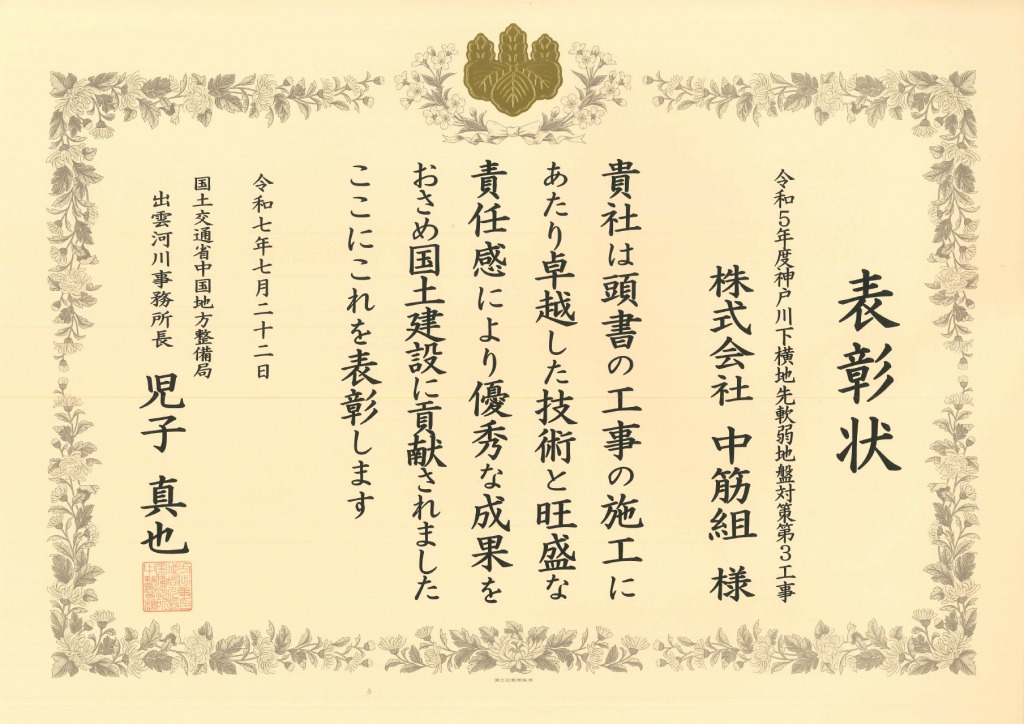 表彰状
令和5年度神戸川下横地先軟弱地盤対策第3工事
株式会社 中筋組 様
貴社は頭書の工事の施工に
あたり卓越した技術と旺盛な
責任感により優秀な成果を
おさめ国土建設に貢献されました
ここにこれを表彰します
令和七年七月二十二日
国土交通省中国地方整備局
出雲河川事務所長
児子 真也